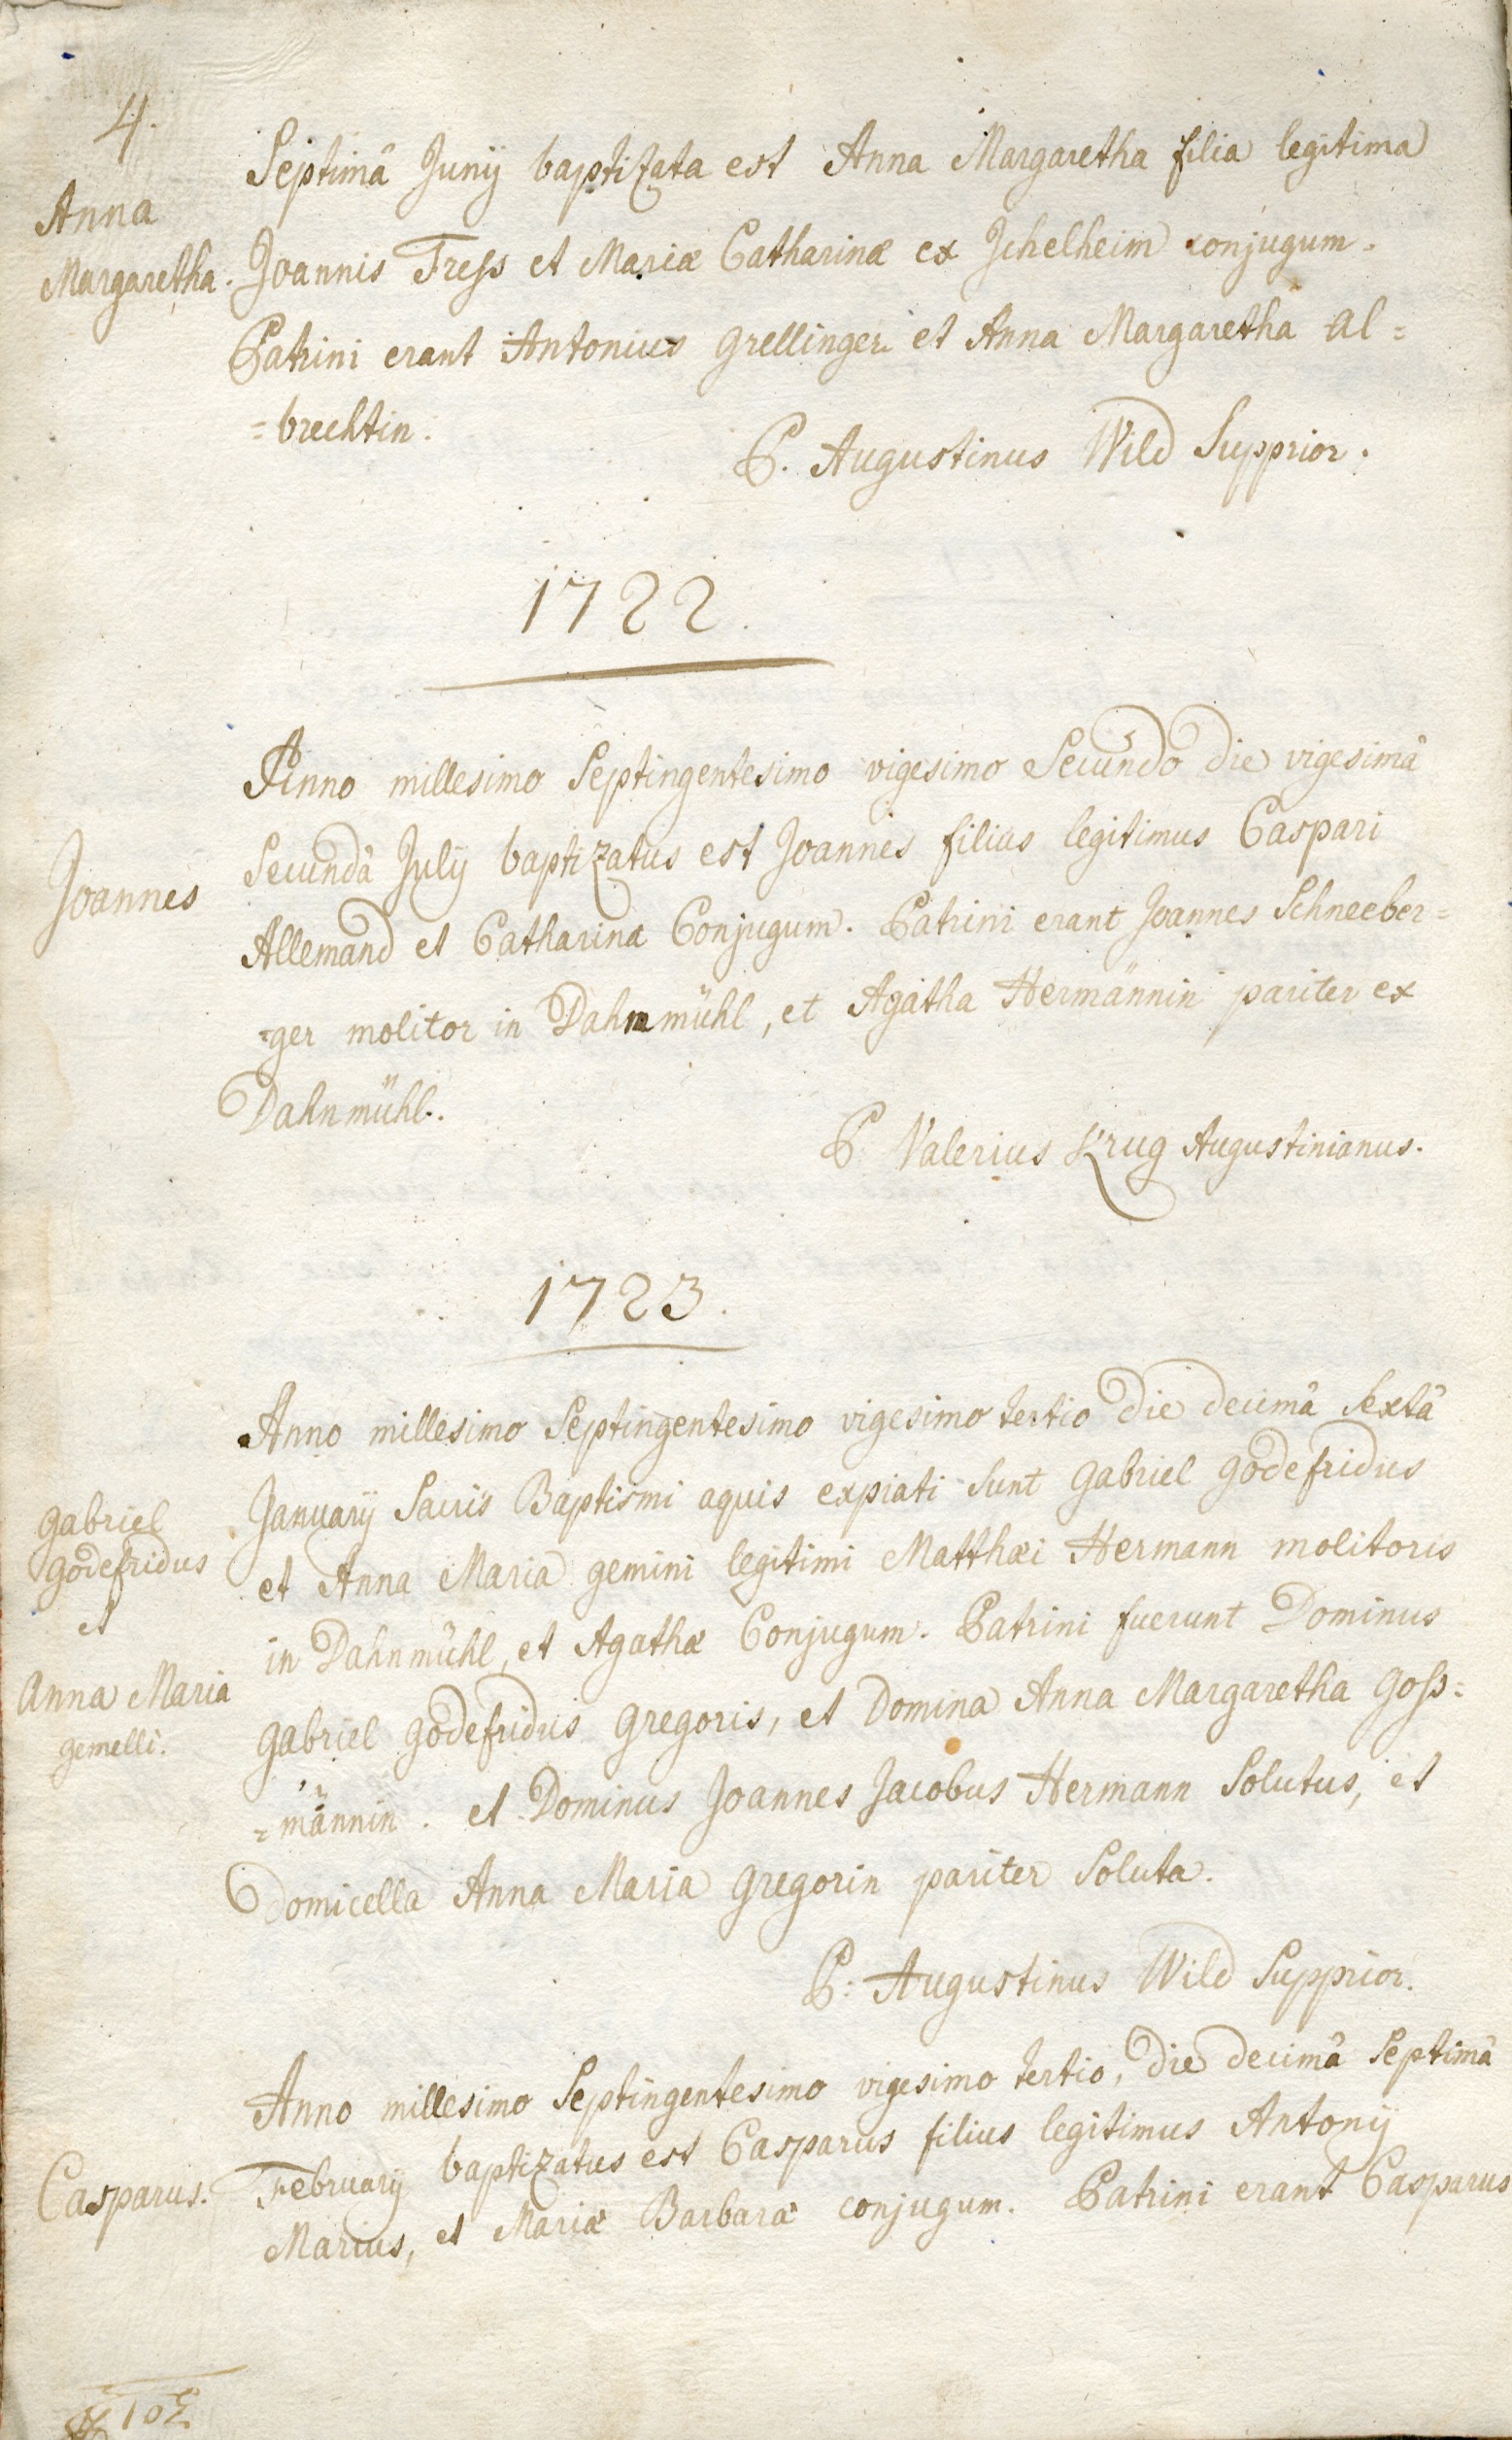 4.
Septimâ Junÿ baptizata est Anna Margaretha filia legitima
Anna
Margaretha.
Joannis Fress et Mariæ Catharinæ ex Ichelheim conjugum.
Patrini erant Antonius Grellinger et Anna Margaretha Al=
=brechtin.
P. Augustinus Wild Supprior.
1722.
Anno millesimo Septingentesimo vigesimo Secundo die vigesimâ
Secundâ Julÿ baptizatus est Joannes filius legitimus Caspari
Joannes
Allemand et Catharinæ Conjugum. Patrini erant Joannes Schneeber=
=ger molitor in Dahnmühl, et Agatha Hermännin pariter ex
Dahnmühl.
P Valerius Krug Augustinianus.
1723.
Anno millesimo Septingentesimo vigesimo tertio die decimâ Sextâ
Januarÿ Sacris Baptismi aquis expiati Sunt Gabriel Godefridus
Gabriel
Godefridus
et
Anna Maria
gemelli.
et Anna Maria gemini legitimi Matthæi Hermann molitoris
in Dahnmühl, et Agathæ Conjugum. Patrini fuerunt Dominus
Gabriel Godefridus Gregoris, et Domina Anna Margaretha Goss=
=männin. et Dominus Joannes Jacobus Hermann Solutus, et
Domicella Anna Maria Gregorin pariter Soluta.
P: Augustinus Wild Supprior.
Anno millesimo Septingentesimo vigesimo tertio, die decimâ Septimâ
Februarÿ baptizatus est Casparus filius legitimus Antonÿ
Casparus.
Marius, et Mariæ Barbaræ conjugum. Patrini erant Casparus